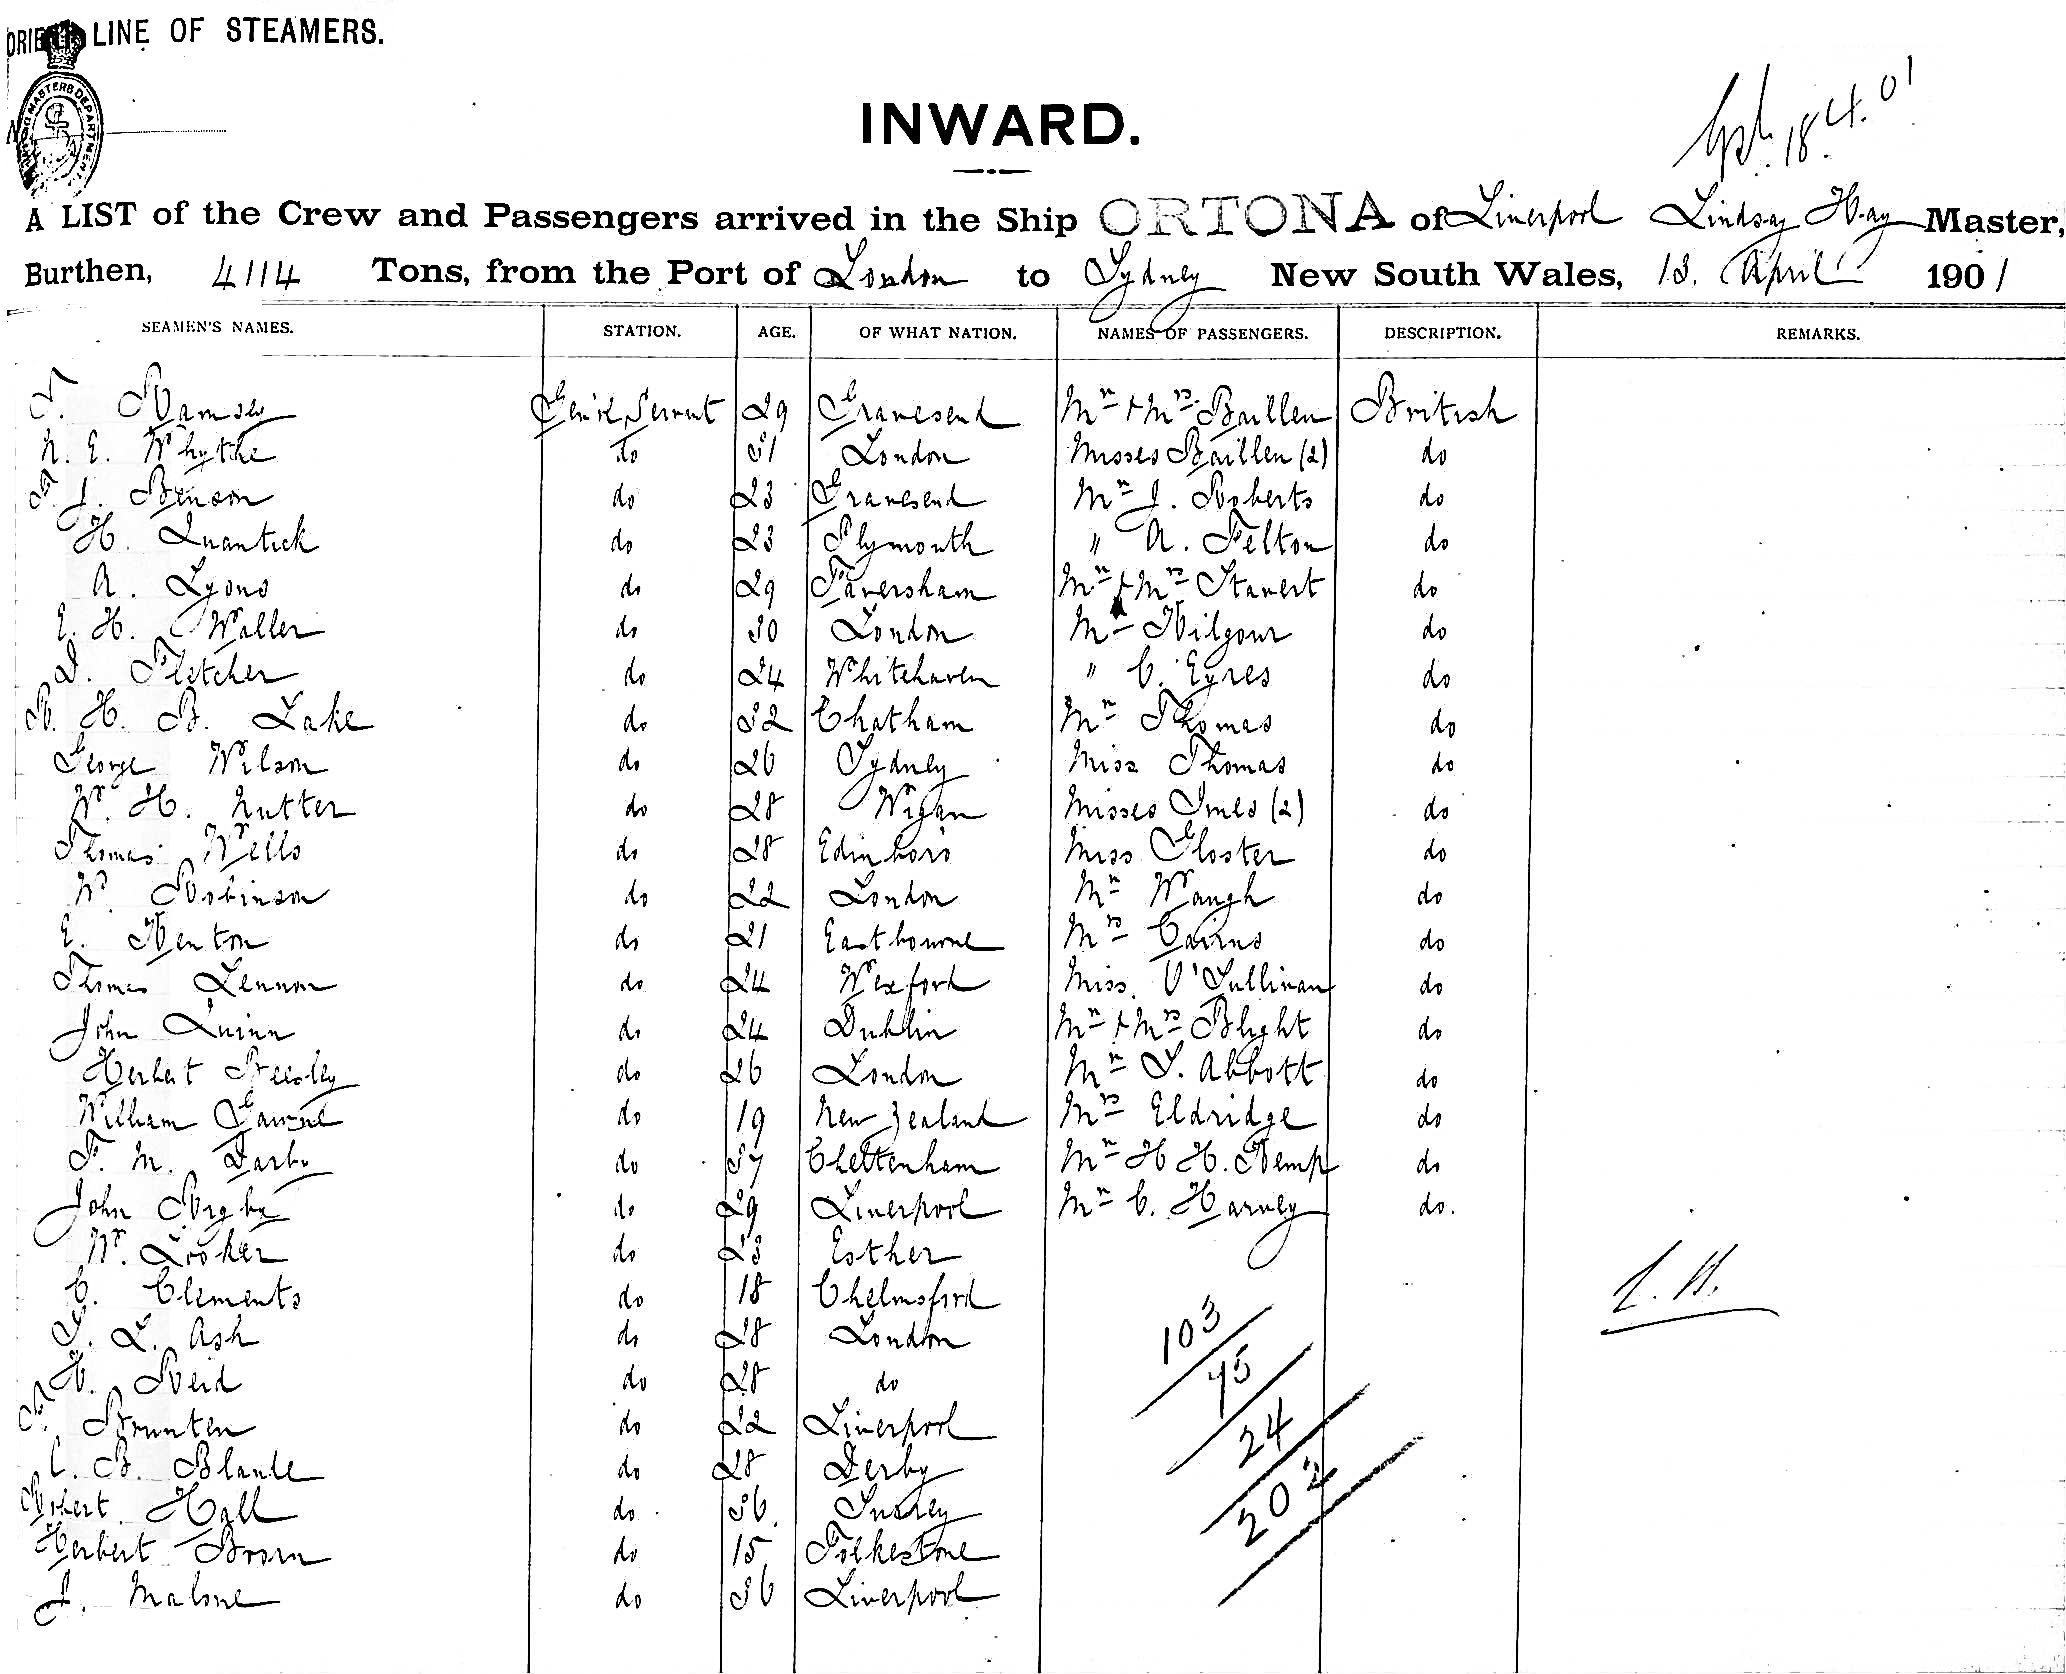 ORIENT LINE OF STEAMERS.
18.4.01
INWARD.
A LIST of the Crew and Passengers arrived in the Ship ORTONA of Liverpool Lindsay Hay Master,
Burthen, 4114 Tons, from the Port of London to Sydney New South Wales, 18. April 1901
SEAMEN'S NAMES. STATION. AGE. OF WHAT NATION. NAMES OF PASSENGERS. DESCRIPTION. REMARKS.
T. Ramsey Gen'l Servant 29 Gravesend Mr & Mrs Baillen British
N. E. Whythe do 31 London Misses Baillen (2) do
J. Benson do 23 Gravesend Mr J. Roberts do
H. Quantick do 23 Plymouth " A. Felton do
A. Lyons do 29 Faversham Mr & Mrs Stavert do
E. H. Waller do 30 London Mr Kilgour do
D. Fletcher do 24 Whitehaven " C. Eyres do
R. H. B. Lake do 32 Chatham Mr Thomas do
George Wilson do 26 Sydney Miss Thomas do
W. H. Nutter do 28 Wigan Misses Imes (2) do
Thomas Wells do 28 Edinboro Miss Gloster do
W. Robinson do 22 London Mr Waugh do
E. Kenton do 21 Eastbourne Mrs Cairns do
Thomas Lennon do 24 Wexford Miss. O'Sullivan do
John Quinn do 24 Dublin Mr & Mrs Blight do
Herbert Beesley do 26 London Mr S. Abbott do
William do 19 New Zealand Mrs Eldridge do
F. M. Darby do 37 Cheltenham Mr H H. Kemp do
John Rigby do 29 Liverpool Mr C. Harvey do.
W. Looker do 23 Esther
C. Clements do 18 Chelmsford
L. Ash do 28 London
H. Reid do 28 do
Brunten do 22 Liverpool
C. B. Blande do 28 Derby
Robert Hall do 36. Surrey
Herbert Brown do 15 Folkestone
J. Malone do 36 Liverpool
L.H.
103
75
24
202